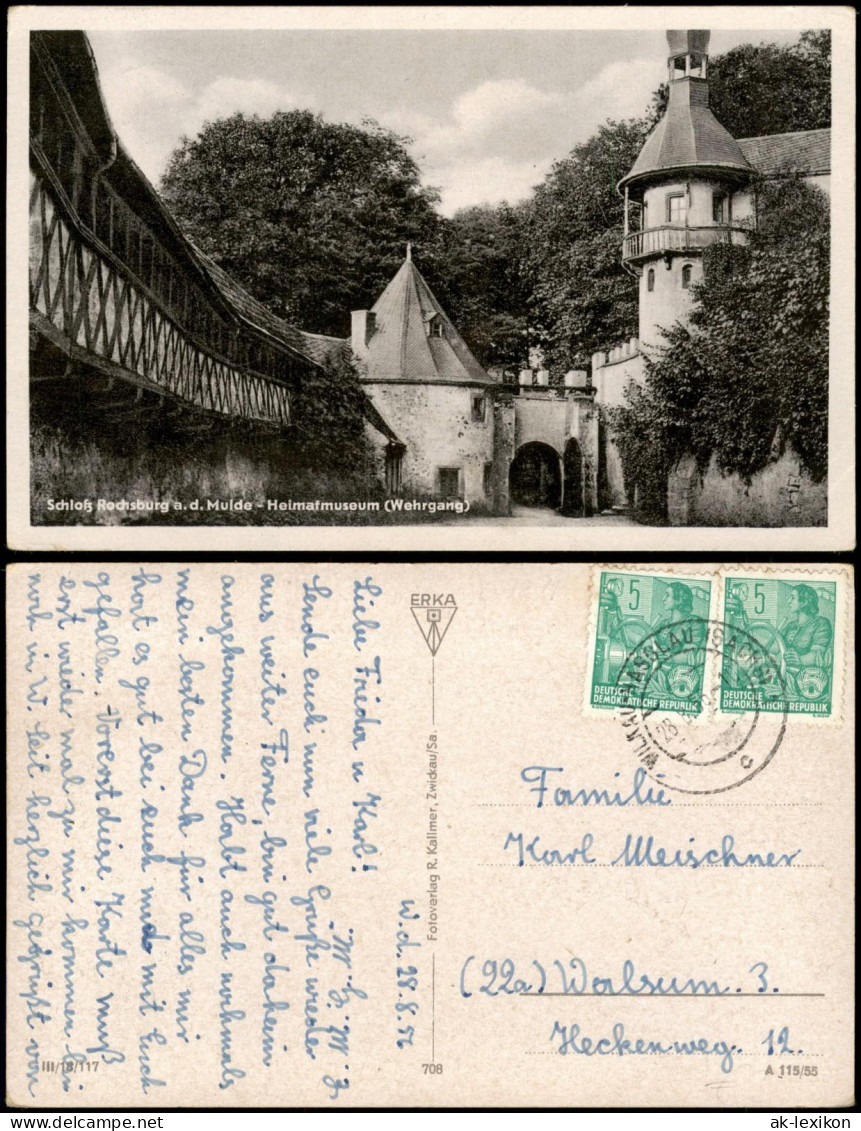 Schloß Rochsburg a. d. Mulde - Heimatmuseum (Wehrgang)
W. d. 28.8.56
Liebe Frieda u Karl!
Sende euch nun viele Grüße wieder
aus weiter Ferne, bin gut daheim
angekommen. Habt auch nohmals
mein besten Dank für alles mir
hat es gut bei euch und mit Euch
gefallen. Vorerst diese Karte muß
erst wieder mal zu mir kommen bei
noch in W. Seit herzlich gegrüßt von
ERKA
Fotoverlag R. Kallmer, Zwickau/Sa.
III/18/117
708
A 115/55
5
DEUTSCHE
DEMOKRATISCHE REPUBLIK
5
DEUTSCHE
DEMOKRATISCHE REPUBLIK
Familie
Karl Meischner
(22a) Walsum. 3.
Heckenweg. 12.
ak-lexikon